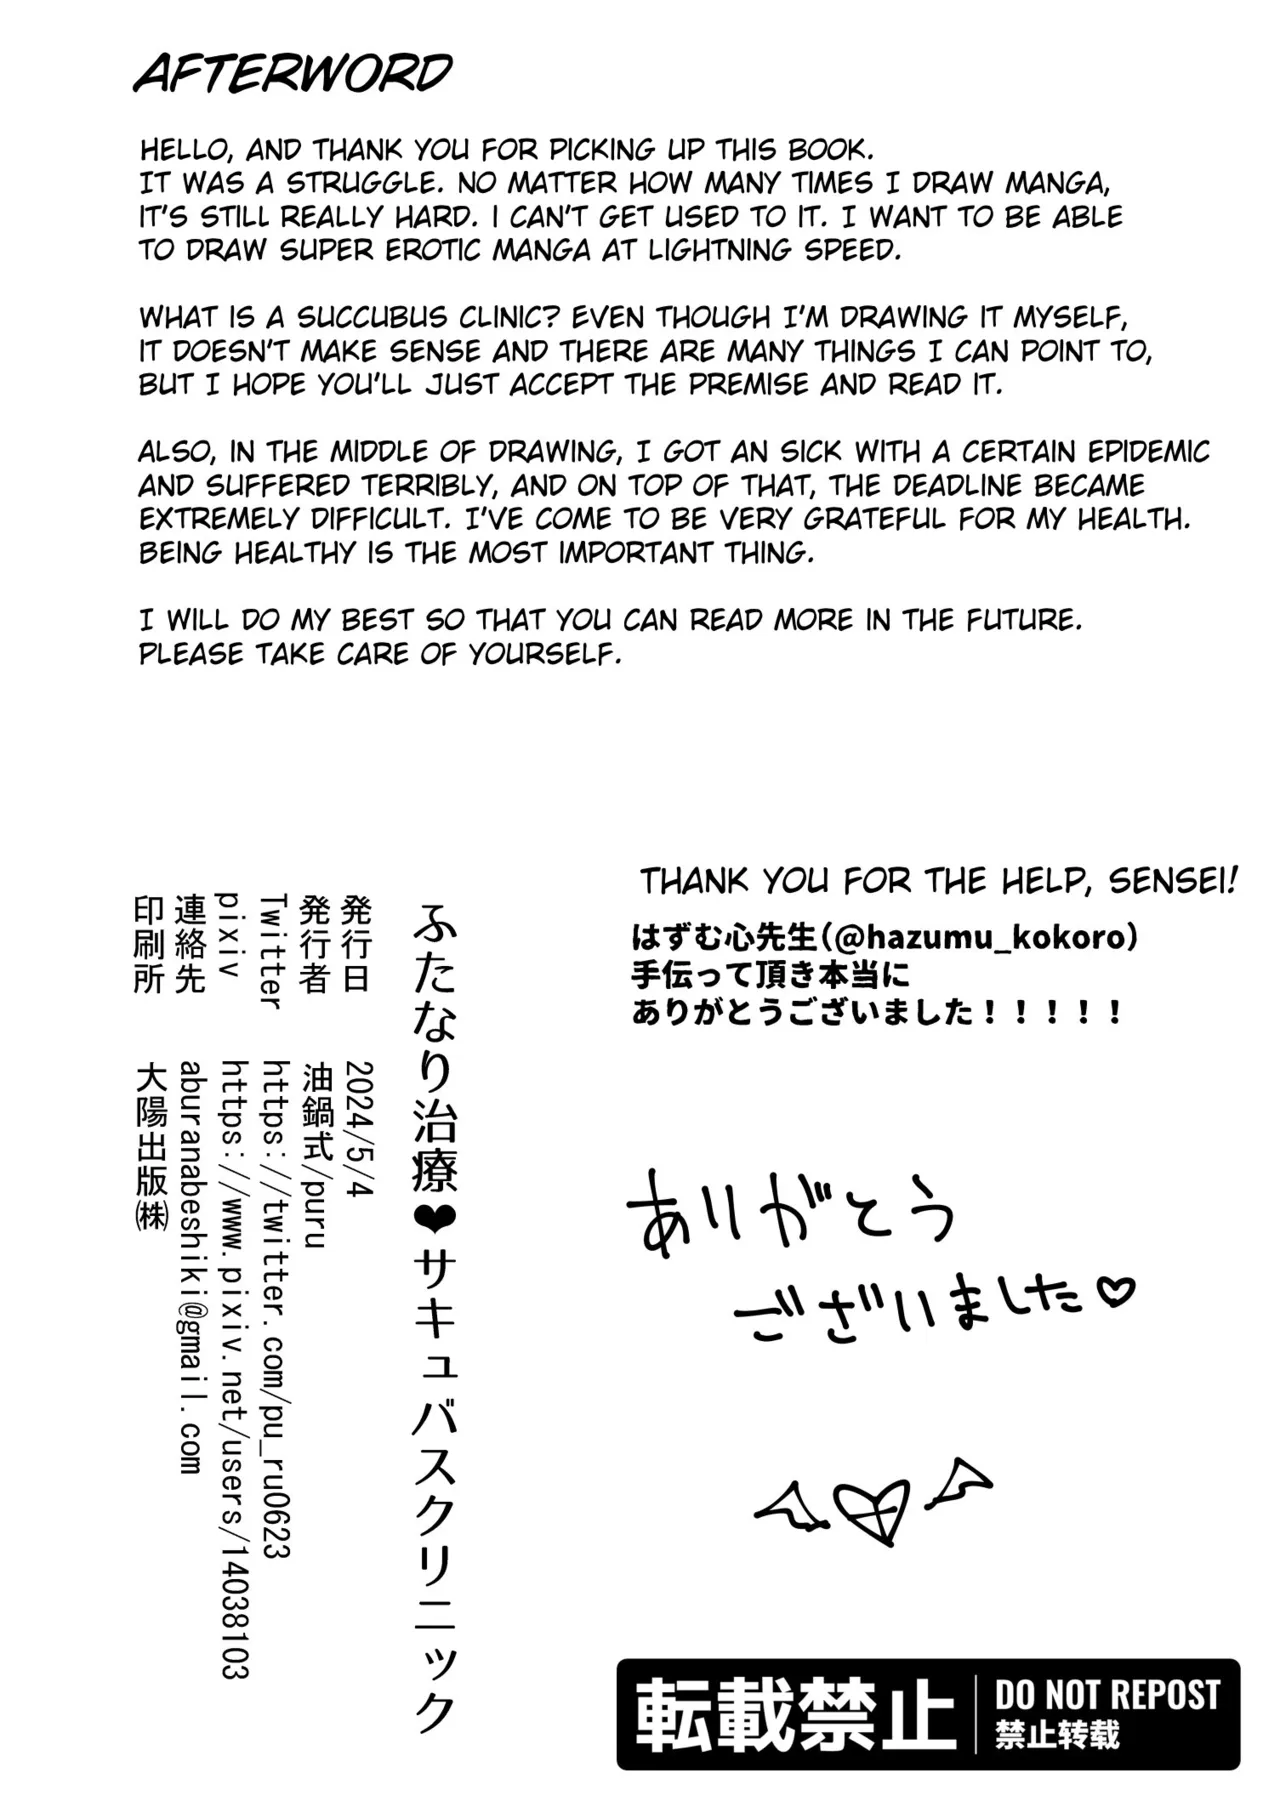 AFTERWORD
HELLO, AND THANK YOU FOR PICKING UP THIS BOOK.
IT WAS A STRUGGLE. NO MATTER HOW MANY TIMES I DRAW MANGA,
IT'S STILL REALLY HARD. I CAN'T GET USED TO IT. I WANT TO BE ABLE
TO DRAW SUPER EROTIC MANGA AT LIGHTNING SPEED.
WHAT IS A SUCCUBUS CLINIC? EVEN THOUGH I'M DRAWING IT MYSELF,
IT DOESN'T MAKE SENSE AND THERE ARE MANY THINGS I CAN POINT TO,
BUT I HOPE YOU'LL JUST ACCEPT THE PREMISE AND READ IT.
ALSO, IN THE MIDDLE OF DRAWING, I GOT AN SICK WITH A CERTAIN EPIDEMIC
AND SUFFERED TERRIBLY, AND ON TOP OF THAT, THE DEADLINE BECAME
EXTREMELY DIFFICULT. I'VE COME TO BE VERY GRATEFUL FOR MY HEALTH.
BEING HEALTHY IS THE MOST IMPORTANT THING.
I WILL DO MY BEST SO THAT YOU CAN READ MORE IN THE FUTURE.
PLEASE TAKE CARE OF YOURSELF.
THANK YOU FOR THE HELP, SENSEI!
はずむ心先生(@hazumu_kokoro)
手伝って頂き本当に
ありがとうございました!!!!!
ありがとう
ございました♡
ふたなり治療❤サキュバスクリニック
発行日 2024/5/4
発行者 油鍋式/puru
Twitter https://twitter.com/pu_ru0623
pixiv https://www.pixiv.net/users/14038103
連絡先 aburanabeshiki@gmail.com
印刷所 大陽出版㈱
転載禁止
DO NOT REPOST
禁止转载